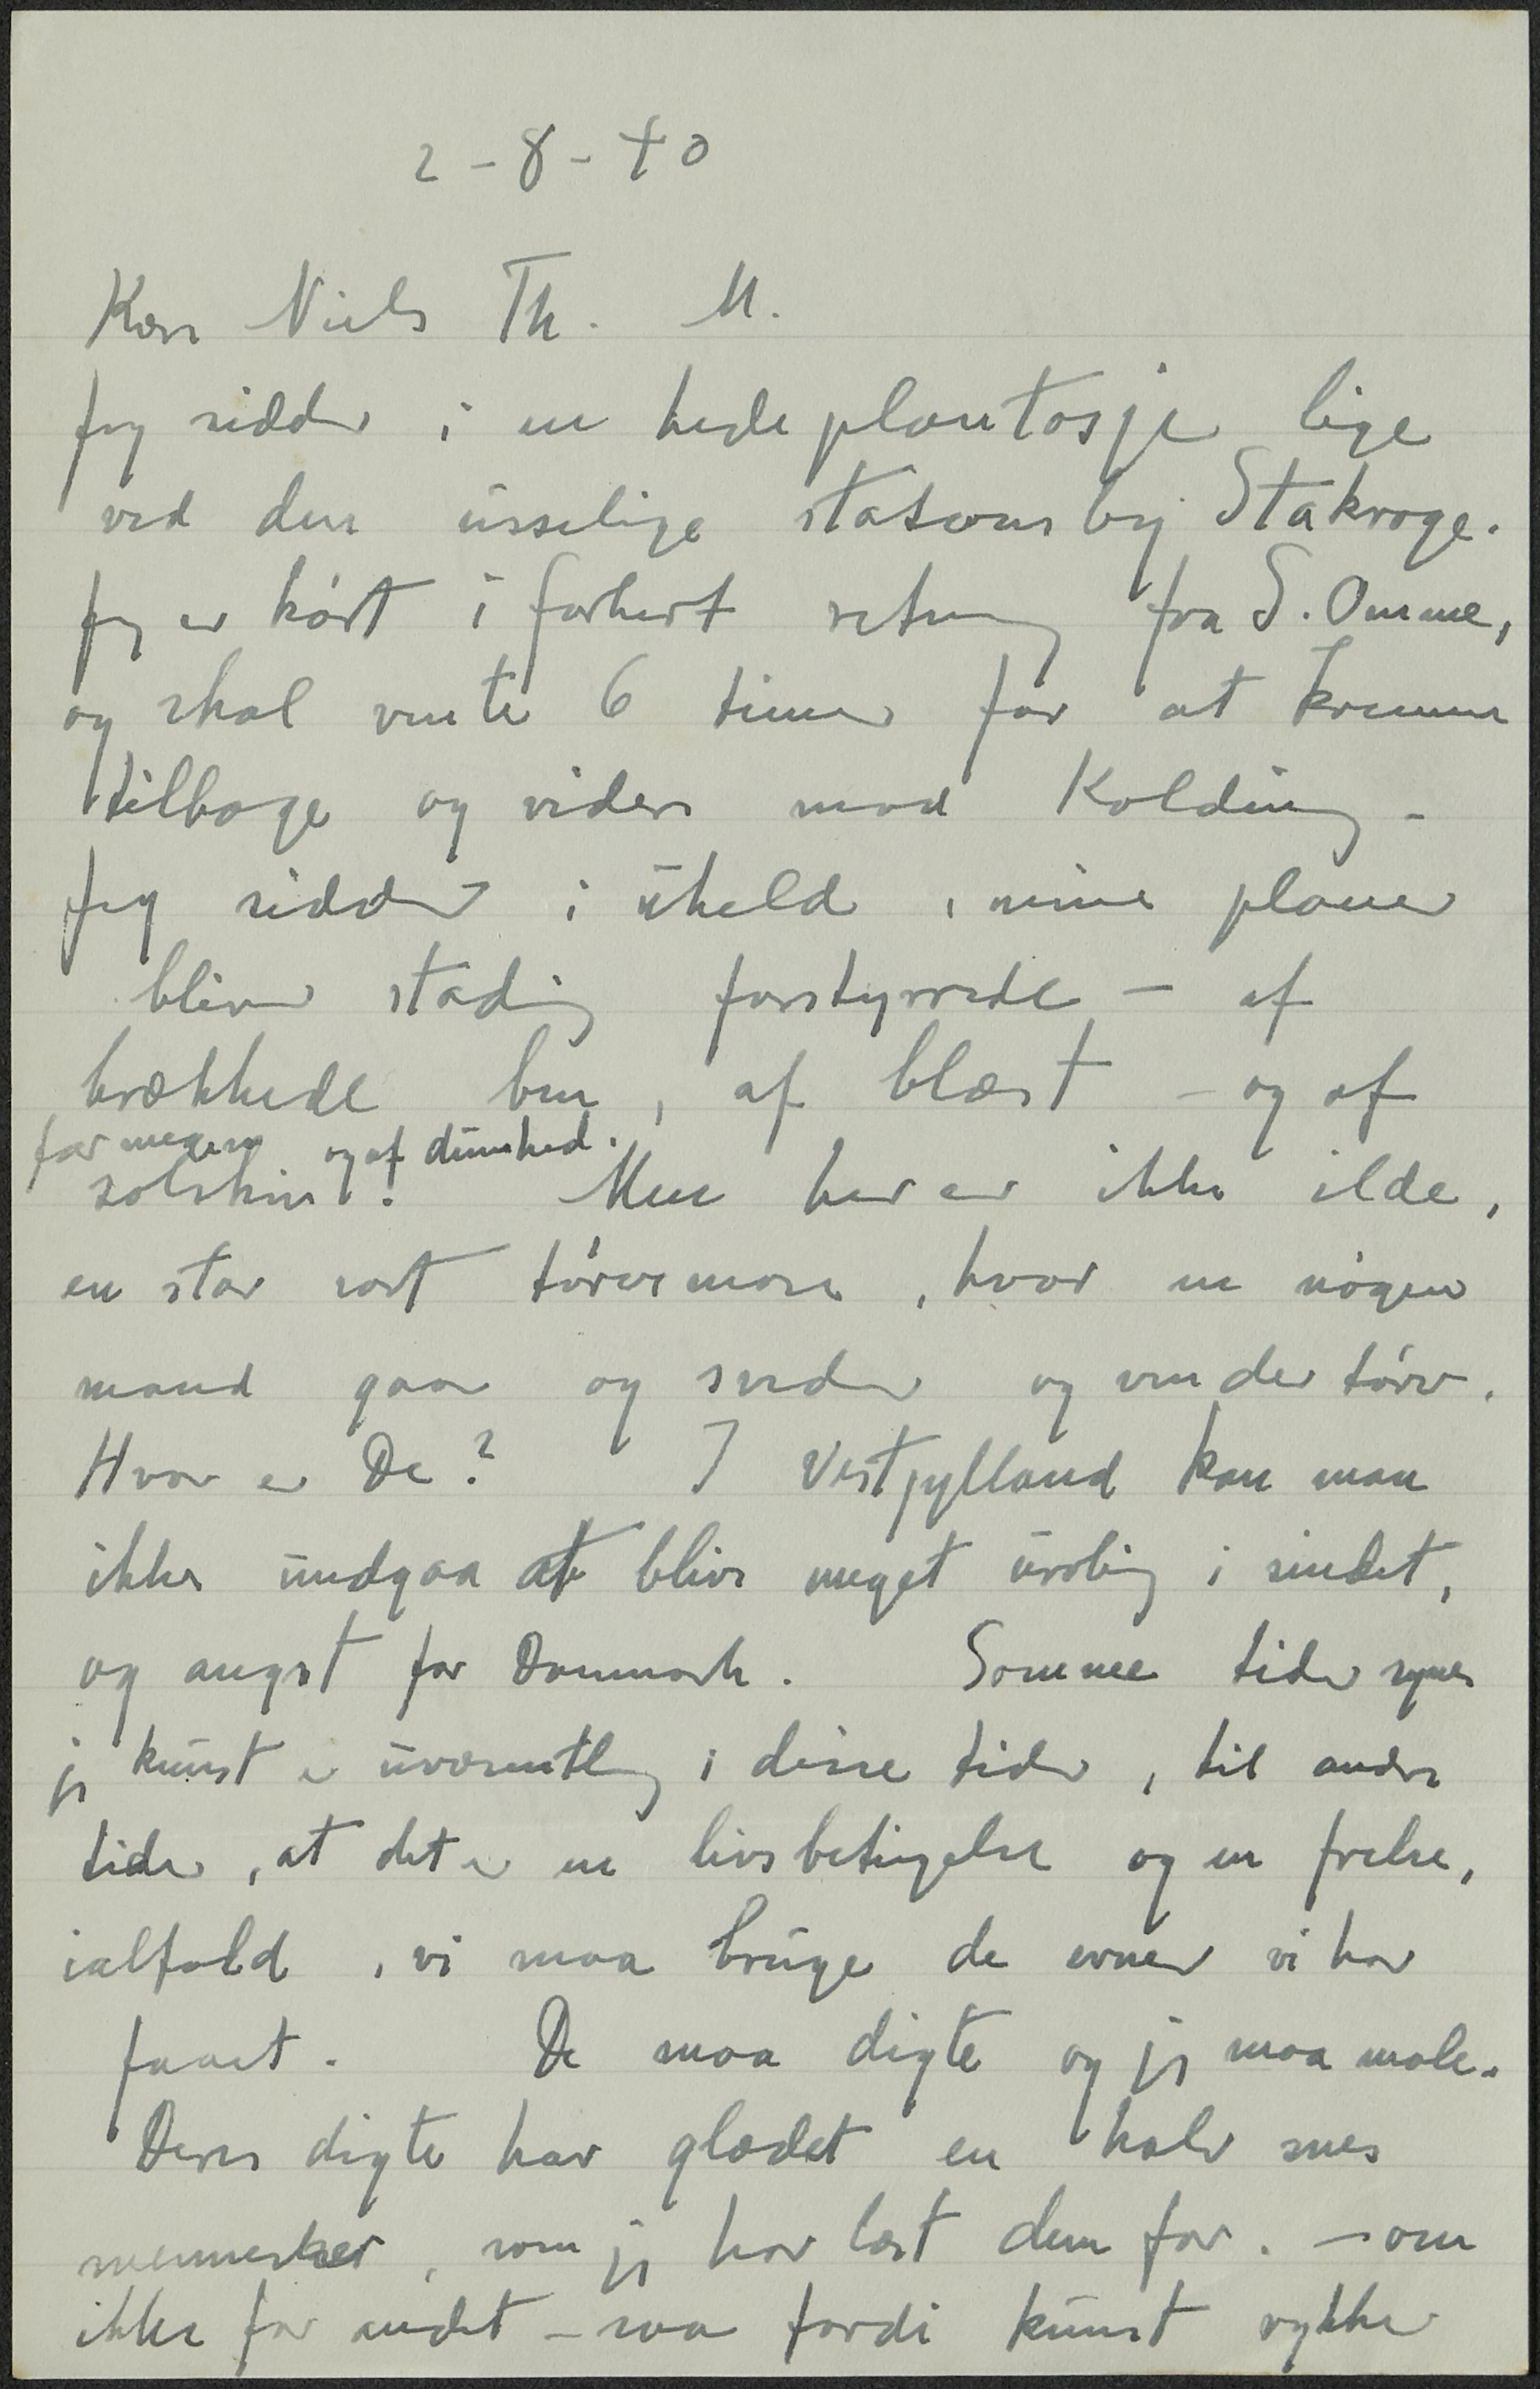 2-8-40
Kære Niels Th. M.
Jeg sidder i en hedeplantasje lige
ved den usselige stationsby Stakroge.
Jeg er kørt i forkert retning fra S. Omme,
og skal vente 6 timer for at komme
tilbage og videre mod Kolding -
Jeg sidder i uheld, mine planer
bliver stadig forstyrrede - af
brækkede ben, af blæst - og af
for megen og af dumhed.
solskin. Men her er ikke ilde,
en stor sort tørvemose, hvor en nøgen
mand gaar og sveder og vender tørv.
Hvor er De? I Vestjylland kan man
ikke undgaa at blive meget urolig i sindet,
og angst for Danmark. Somme tider synes
jeg kunst er uvæsentlig i disse tider, til andre
tider, at det er en livsbetingelse og en frelse,
ialfald, vi maa bruge de evner vi har
faaet. De maa digte og jeg maa male.
Deres digte har glædet en halv snes
mennesker, som jeg har læst dem for. - om
ikke for andet - saa fordi kunst rykker